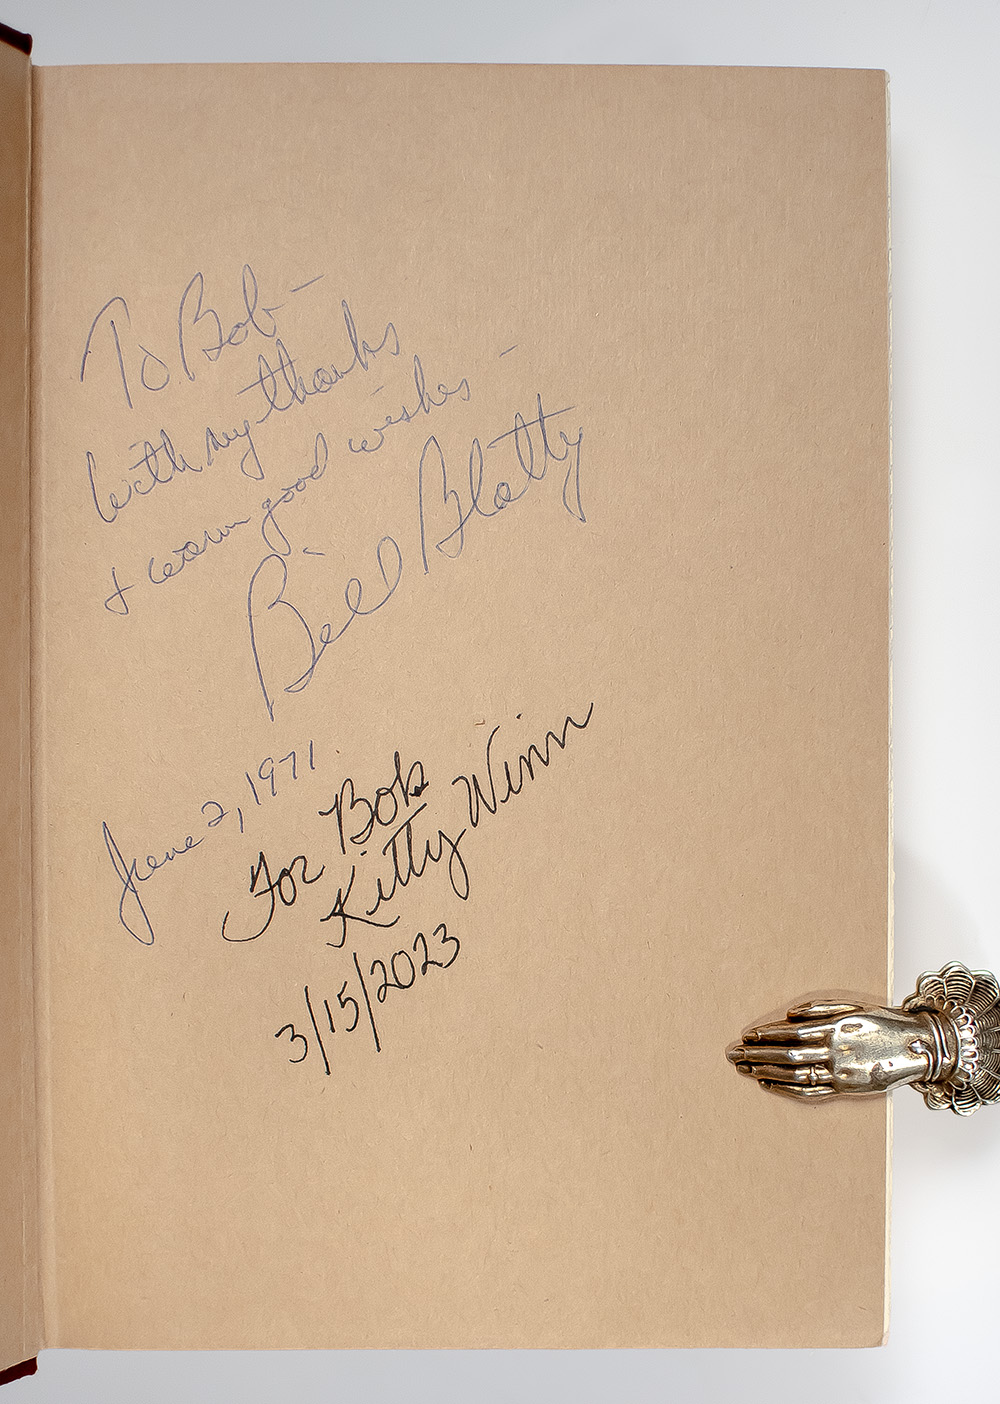 To Bob –
with my thanks
& warm good wishes –
Bill Blatty
June 2, 1971.
For Bob
Kitty Winn
3/15/2023